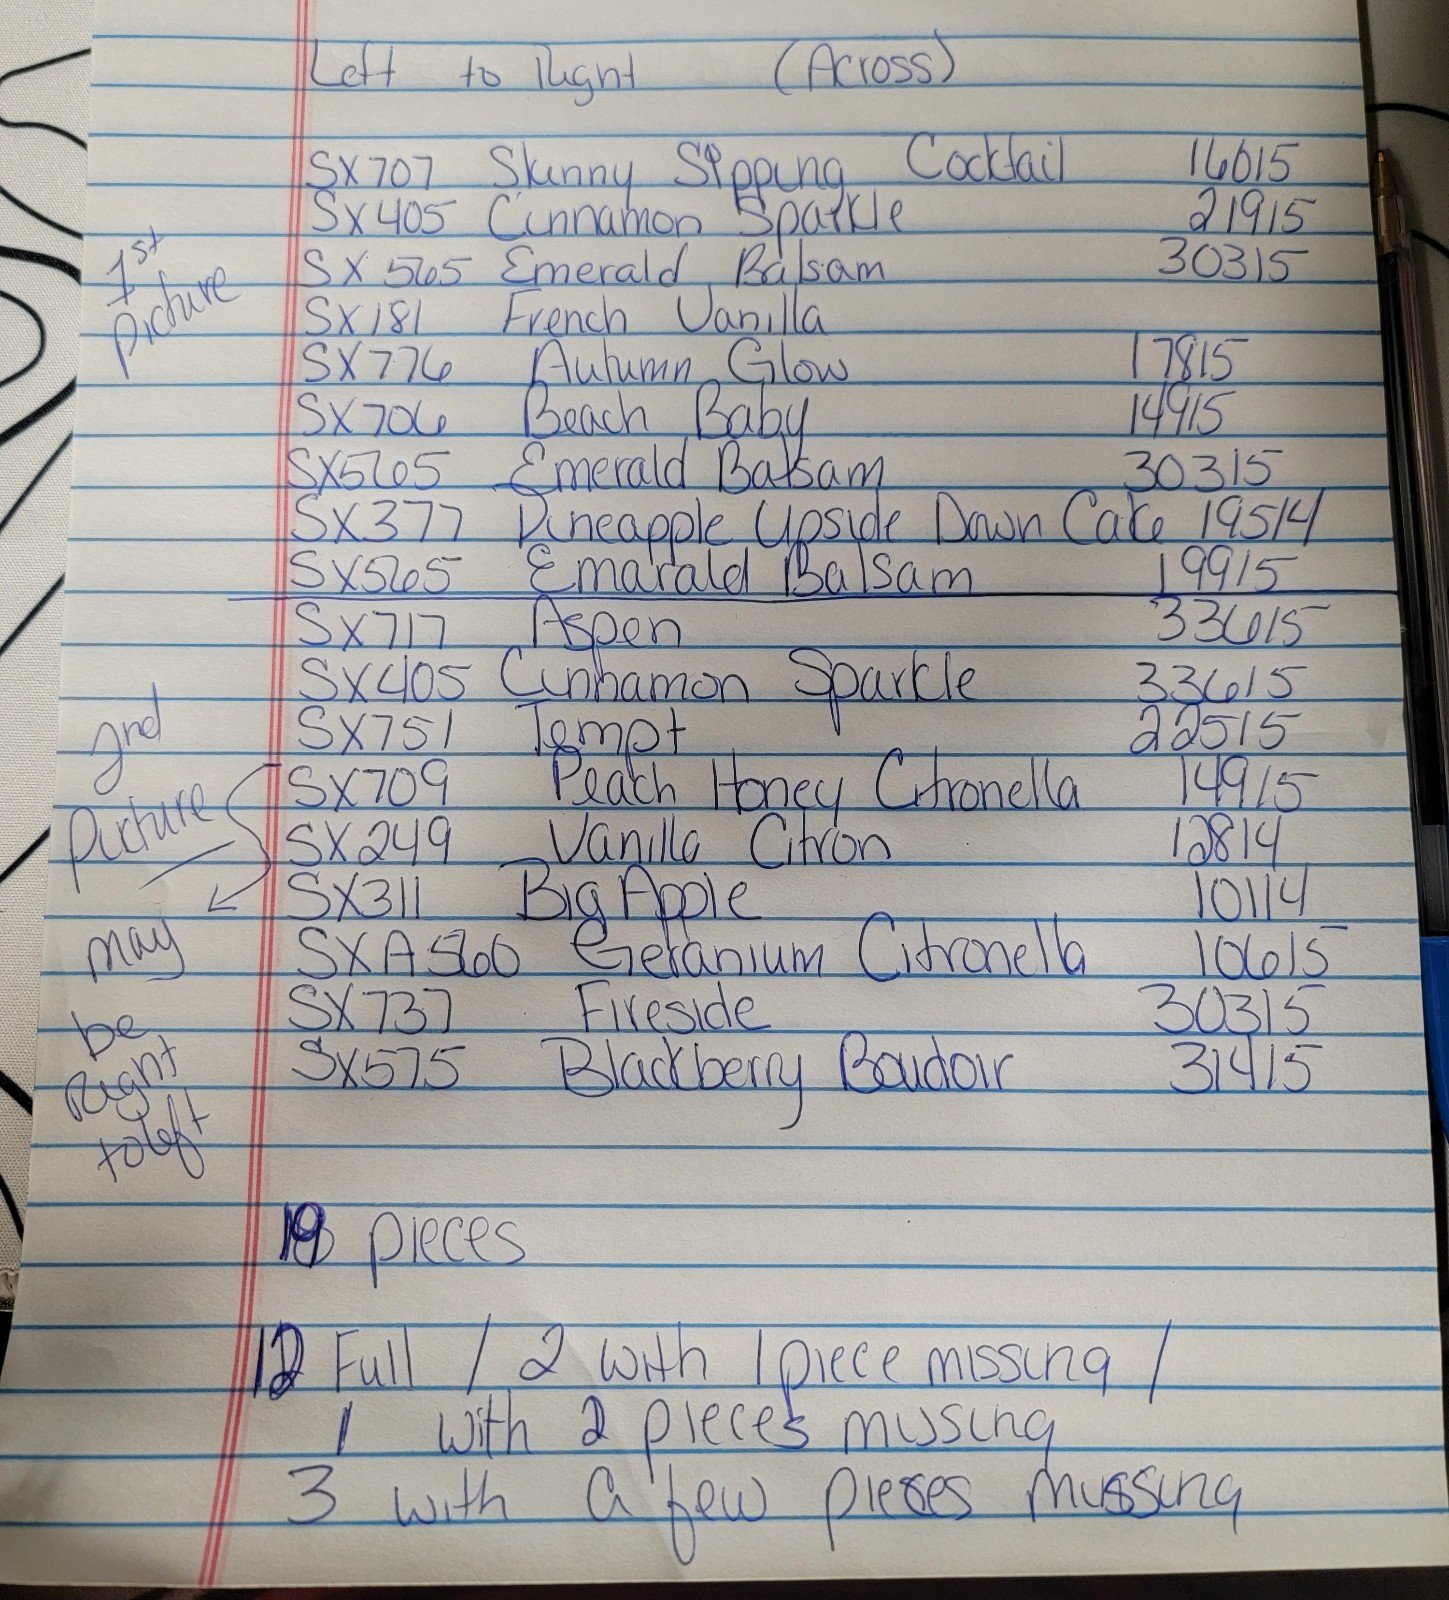 Left to Right (Across)
1st Picture
SX707 Skinny Sipping Cocktail 16015
SX405 Cinnamon Sparkle 21915
SX565 Emerald Balsam 30315
SX181 French Vanilla
SX776 Autumn Glow 17815
SX706 Beach Baby 14915
SX565 Emerald Balsam 30315
SX377 Pineapple Upside Down Cake 19514
SX565 Emarald Balsam 19915
2nd Picture
may
be
Right
to left
SX717 Aspen 33615
SX405 Cinnamon Sparkle 33615
SX751 Tempt 22515
SX709 Peach Honey Citronella 14915
SX249 Vanilla Citron 12814
SX311 Big Apple 10114
SXA560 Geranium Citronella 10615
SX737 Fireside 30315
SX575 Blackberry Boudoir 31415
pieces
12 Full / 2 with 1 piece missing /
1 with 2 pieces missing
3 with a few pieses missing